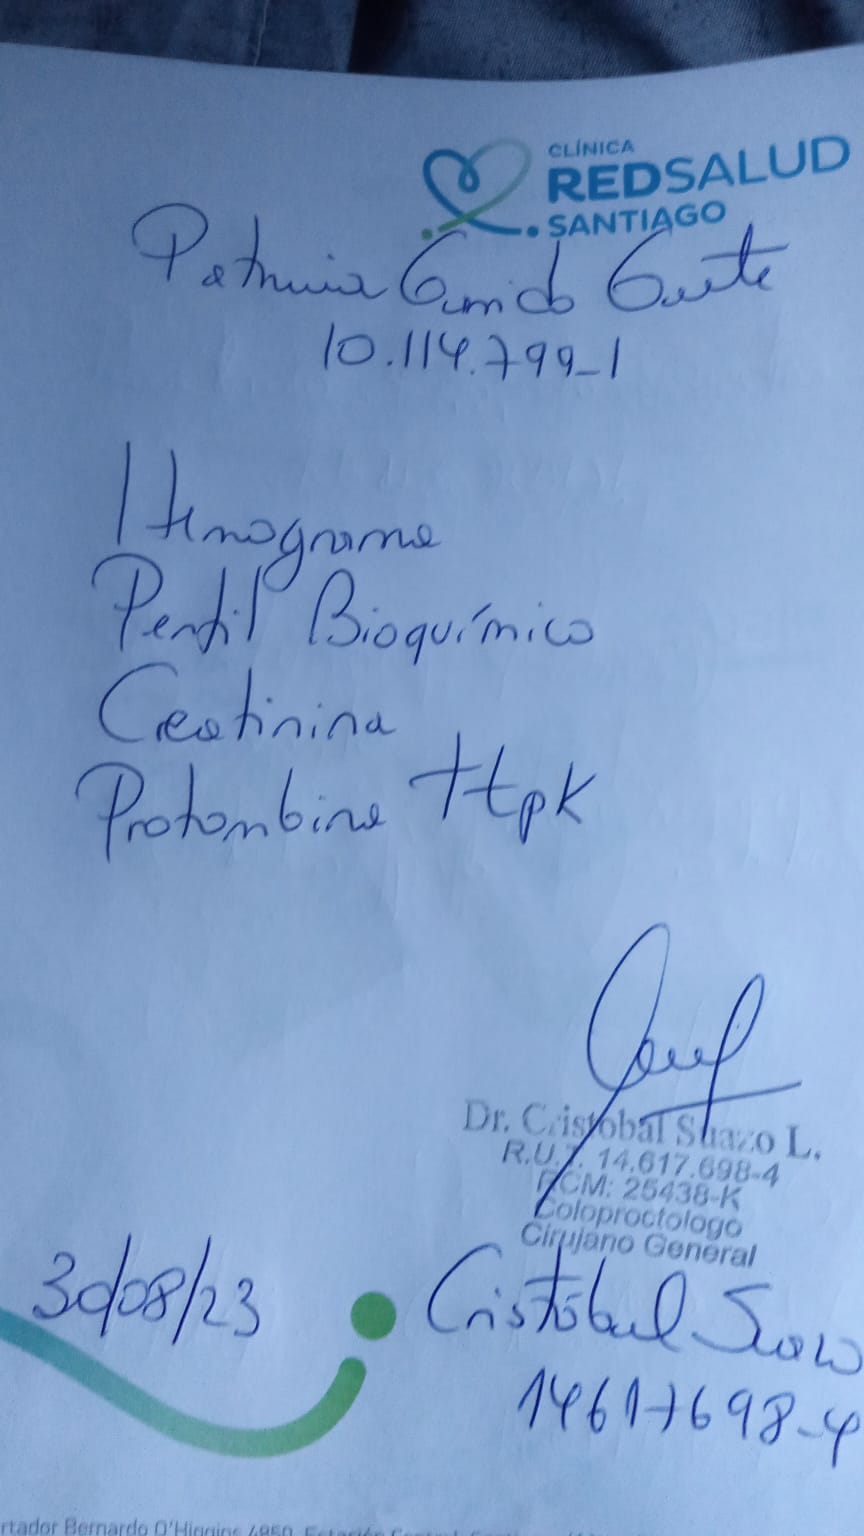 CLÍNICA
REDSALUD
SANTIAGO
Patricia
10.114.799-1
Hemograma
Perfil Bioquímico
Creatinina
Protombina ttpk
Dr. Cristobal Suazo L.
R.U.T. 14.617.698-4
RCM: 25438-K
Coloproctologo
Cirujano General
30/08/23
Cristóbal Suazo
14617698-4
rtador Bernardo O'Higgins 4850, Estación Central